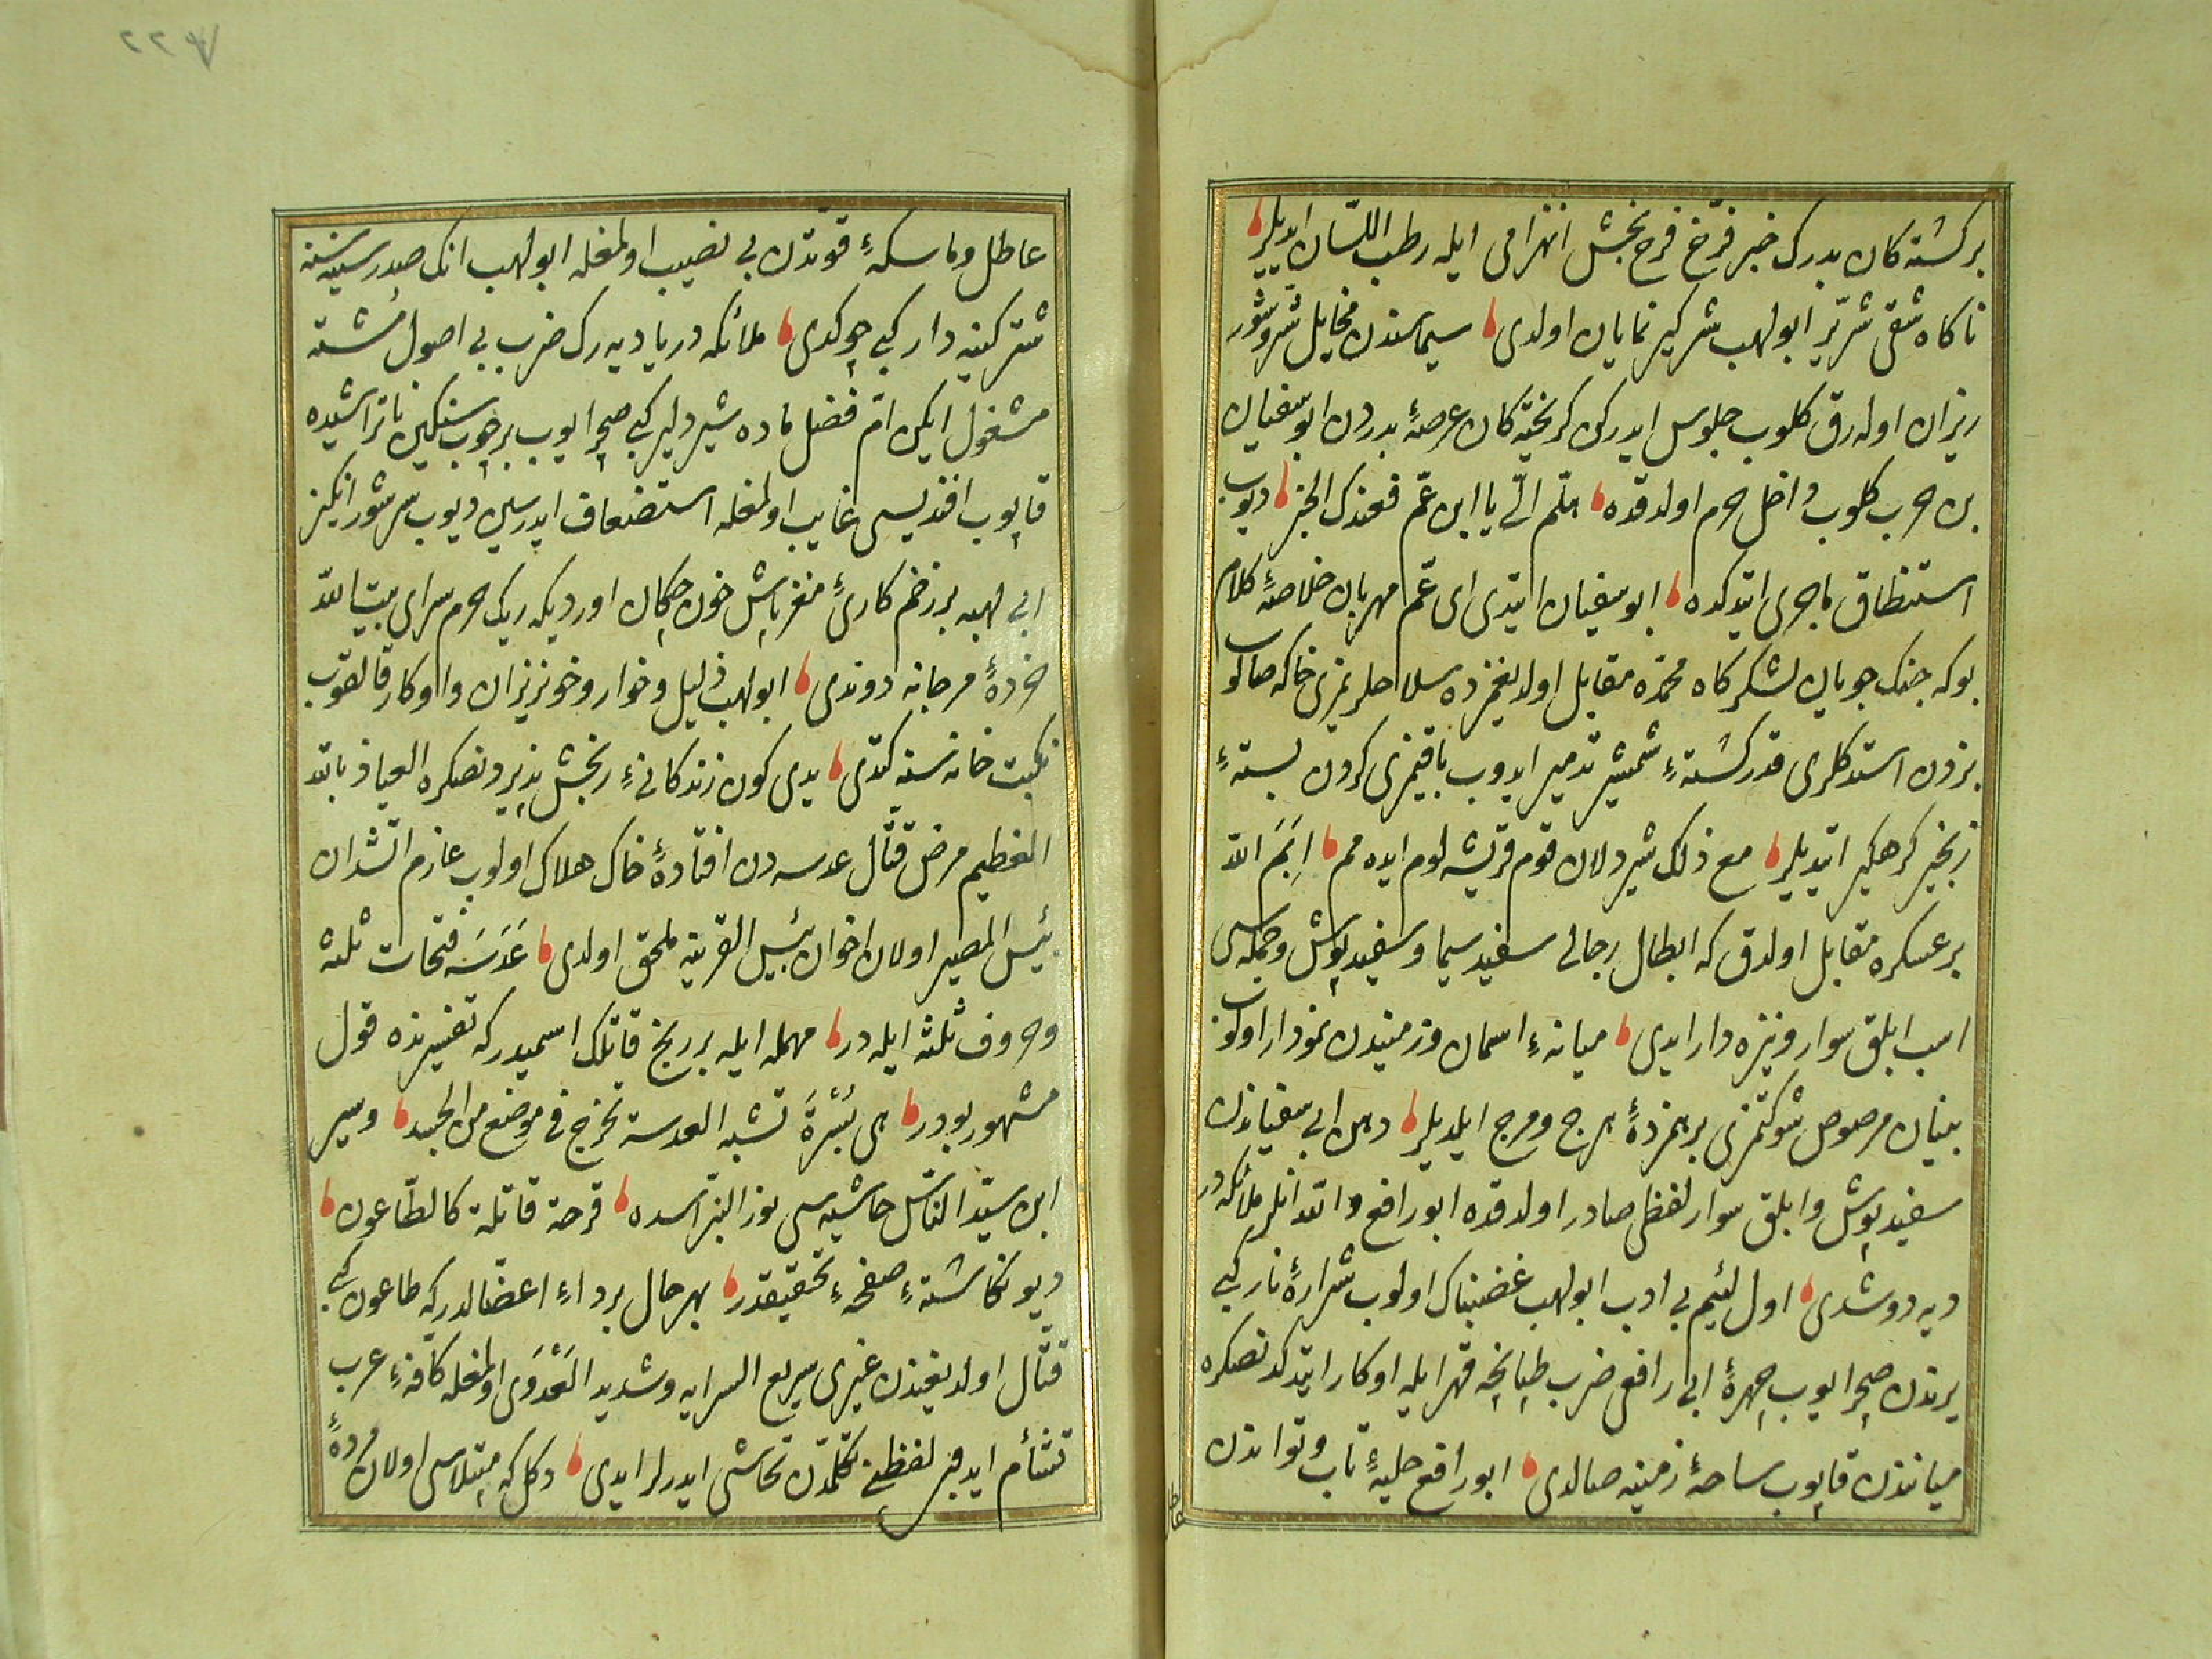 بركشته كان بدرك خبر فرّخ فرح بخش انهزامى ايله رطب اللسان ايديلر
ناكاه شقى شرّير ابولهب شركير نمايان اولدى سيماسندن مخايل شرّ و شور
ريزان اوله رق كلوب جلوس ايدركن كريخته كان عرصۀ بدردن ابو سفيان
بن حرب كلوب داخل حرم اولدقده هلم الىّ يا ابن عم فعندك الخبر ديوب
استنطاق ماجرى ايتدكده ابو سفيان ايتدى اى عم مهربان خلاصۀ كلام
بوكه جنك جويان لشكركاه محمّده مقابل اولديغمزده سلاحلريمزى خاكه صالوب
بزدن استدكلرى قدر كشتهٔ شمشير تدمير ايدوب باقيمزى كردن بستهٔ
زنجير كرهكير ايتديلر مع ذلك شيردلان قوم قريشه لوم ايده مم ايم الله
بر عسكره مقابل اولدق كه ابطال رجالى سفيد سيما و سفيد پوش و جمله سى
اسب ابلق سوار و نيزه دار ايدى ميانهٔ اسمان و زميندن نمودار اولوب
بنيان مرصوص شوكتمزى برهمزدۀ هرج و مرج ايلديلر دهن ابى سفياندن
سفيد پوش و ابلق سوار لفظى صادر اولدقده ابو رافع والله انلر ملائكه در
ديه دوشدى اول لئيم بى ادب ابولهب غضبناك اولوب شرارۀ نار كبى
يرندن صچرايوب چهرۀ ابى رافعى ضرب طپانچه قهر ايله اوكار ايتدكدنصكره
مياندن قاپوب ساحۀ زمينه صالدى ابو رافع حليۀ تاب و تواندن
عاطل و ماسكهٔ قوّتدن بى نصيب اولمغله ابولهب انك صدر سينه سنه
شتر كينه دار كبى چوكدى ملائكه در يا ديه رك ضرب بى اصول مشته
مشغول ايكن امّ فضل ماده شير دلير كبى صچرايوب بر چوب سنكين ناتراشيده
قاپوب افنديسى غايب اولمغله استضعاف ايدرسين ديوب سر شور انكيز
ابى لهبه بر زخم كارىٔ مغز پاش خون چكان اورديكه ريك حرم سراى بيت الله
خردۀ مرجانه دوندى ابولهب ذليل و خوار و خونريزان و اوكار قالقوب
نكبت خانه سنه كتدى يدى كون زندكانىٔ رنجش پذيردنصكره العياذ بالله
العظيم مرض قتّال عدسه دن افتادۀ خاك هلاك اولوب عازم آتشدان
بئس المصير اولان اخوان بئيس القرينه ملحق اولدى عَدَسَه فتحات ثلثه
و حروف ثلثه ايله در مهمله ايله بر رنج قاتلك اسميدر كه تفسيرنده قول
مشهور بودر هى بُثْرَة تشبه العدسة تخرج فى موضع من الجسد و سير
ابن سيّد الناس حاشيه سى نور النبراسده قرحة قاتلة كالطّاعون
ديو نكاشتهٔ صفحهٔ تحقيقدر بهر حال بر داء اعضّالدر كه طاعون كبى
قتّال اولديغندن غيرى سريع السرايه و شديد العَدْوَى اولمغله كافهٔ عرب
تشأم ايدوب لفظنى تكلّمدن تحاشى ايدرلر ايدى دكل كه مبتلاسى اولان مردۀ